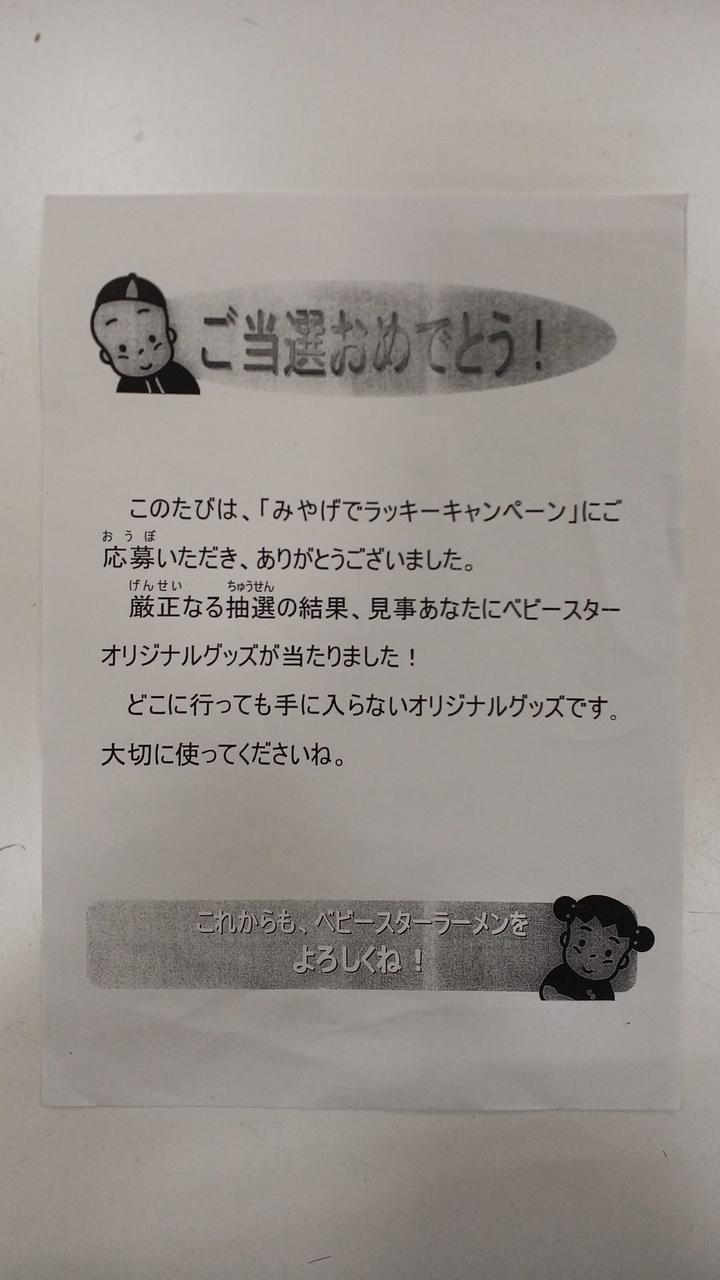 ご当選おめでとう！
このたびは、「みやげでラッキーキャンペーン」にご
おうぼ
応募いただき、ありがとうございました。
げんせい ちゅうせん
厳正なる抽選の結果、見事あなたにベビースター
オリジナルグッズが当たりました！
どこに行っても手に入らないオリジナルグッズです。
大切に使ってくださいね。
これからも、ベビースターラーメンを
よろしくね！